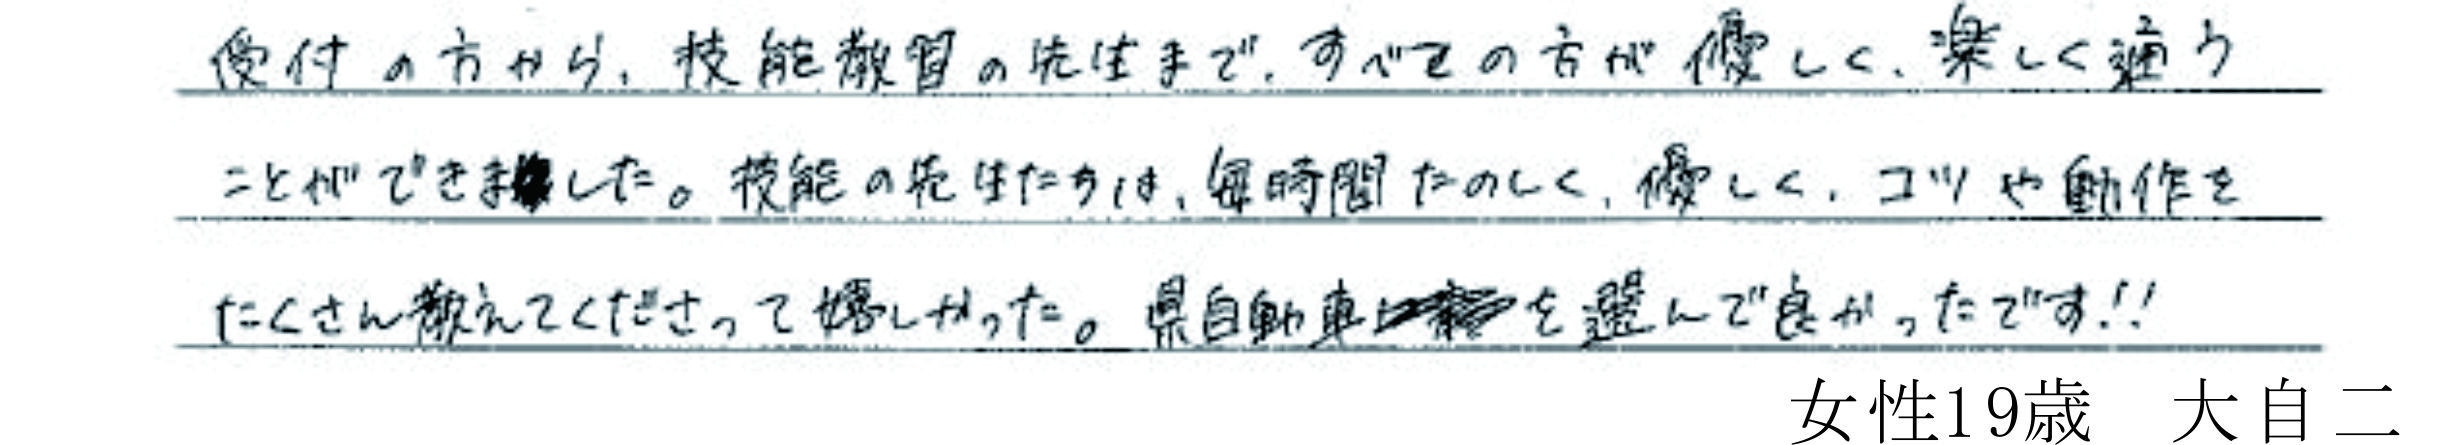 受付の方から、技能教習の先生まで、すべての方が優しく、楽しく通う
ことができました。技能の先生たちは、毎時間たのしく、優しく、コツや動作を
たくさん教えてくださって嬉しかった。県自動車を選んで良かったです!!
女性19歳　大自二